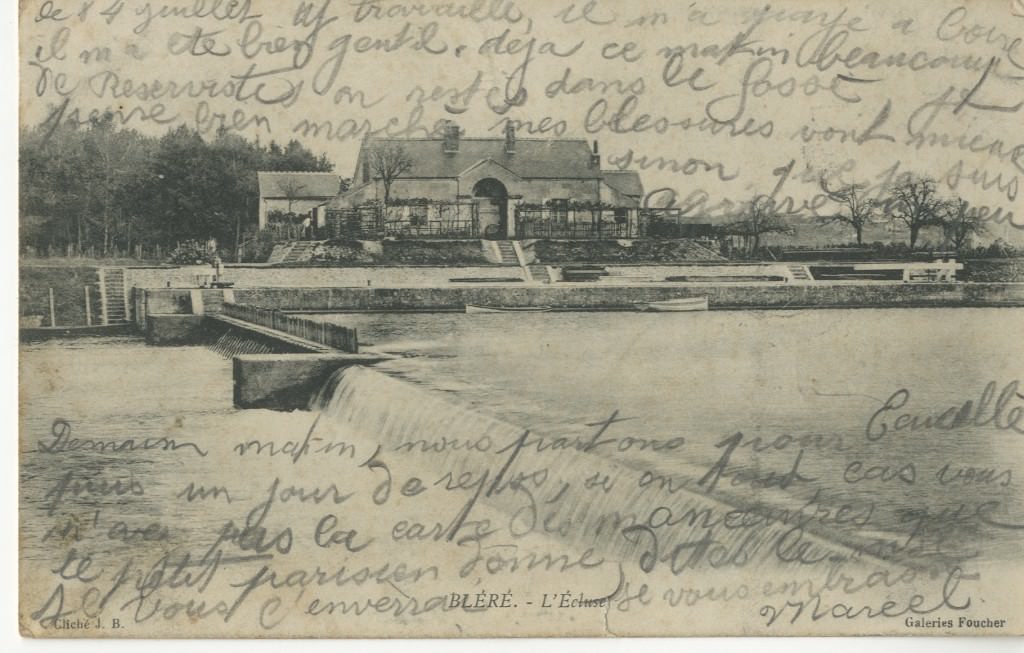 de 84 juillet et travaille, il m'a payé à boire
il m'a été bien gentil. déjà ce matin beaucoup
de Reservistes on restés dans le fossé
bien marcher mes blessures vont mieux
sinon que je suis
un peu
Demain matin, nous partons pour Ecueillé
puis un jour de repos, si en tout cas vous
n'avez pas la carte des manoeuvres que
le petit parisien donne dites le moi
je vous l'enverrai je vous embrasse
Marcel.
BLÉRÉ. - L'Écluse
Cliché J. B.
Galeries Foucher